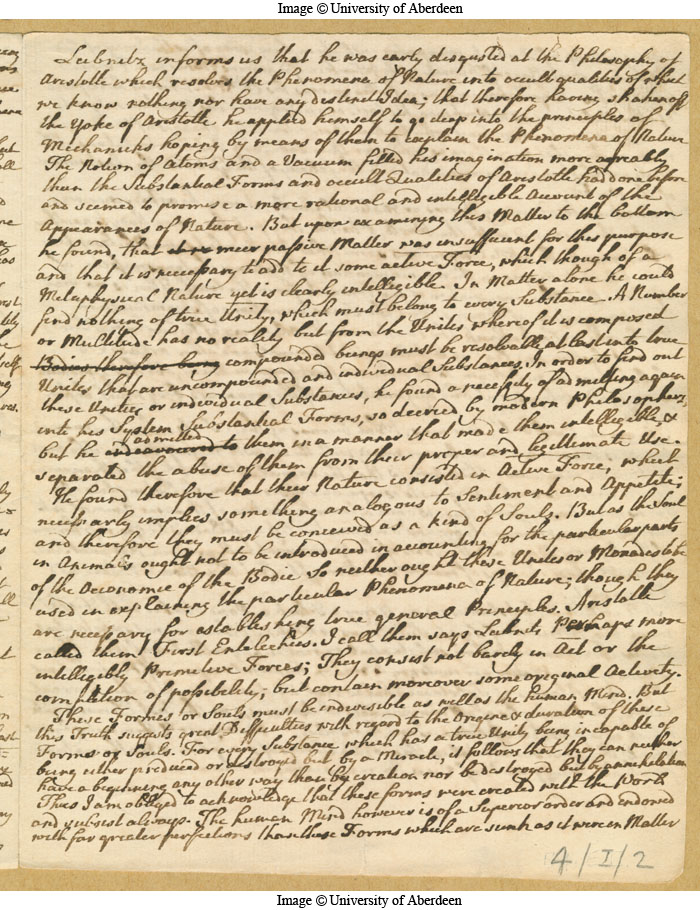 Image © University of Aberdeen
Leibnitz informs us that he was early disgusted at the Philosophy of
Aristotle which resolves the Phenomena of Nature into occult qualities of which
we know nothing nor have any distinct Idea; that therefore having shaken off
the Yoke of Aristotle he applied himself to go deep into the principles of
Mechanicks hoping by means of them to explain the Phenomena of Nature
The Notion of Atoms and a Vacuum filled his imagination more agreably
than the Substantial Forms and occult Qualities of Aristotle had done before
and seemed to promise a more rational and intelligible Account of the
Appearances of Nature. But upon examining this Matter to the bottom
he found, that meer passive Matter was insufficient for this purpose
and that it is necessary to add to it some active Force, which though of a
Metaphysical Nature yet is clearly intelligible. In Matter alone he could
find nothing of true Unity, which must belong to every Substance. A Number
or Multitude has no reality but from the Unites whereof it is composed
Bodies therefore being compounded beings must be resolvable at last into true
Unites that are uncompounded and individual Substances. In order to find out
these Unites or individual Substances, he found a necessity of admitting again
into his System Substantial Forms, so decried by modern Philosophers,
but he endeavoured to admitted them in a manner that made them intelligible, &
separated the abuse of them from their proper and legitimate Use.
He found therefore that their Nature consisted in Active Force, which
necessarly implies something analogous to Sentiment and Appetite;
and therefore they must be conceived as a kind of Souls. But as the Soul
in Animals ought not to be introduced in accounting for the particular parts
of the Oeconomie of the Bodie So neither ought these Unites or Monades to be
used in explaining the particular Phenomena of Nature; though they
are necessary for establishing true general Principles. Aristotle
called them First Entelechies. I call them says Leibnitz Perhaps more
intelligibly Primitive Forces; They consist not barely in Act or the
completion of possibility, but contain moreover some original Activity.
These Formes or Souls must be indivisible as well as the human Mind. But
this Truth suggests great Difficulties with regard to the Origine & duration of these
Formes or Souls. For every Substance which has a true Unity being incapable of
being either produced or destroyed but by a Miracle, it follows that they can neither
have a beginning any other way than by creation nor be destroyed but by annihilation
Thus I am obliged to acknowledge that these forms were created with the World
and subsist always. The human Mind however is of a Superior order and endowed
with far greater perfections than these Forms which are sunk as it were in Matter
4/I/2
Image © University of Aberdeen